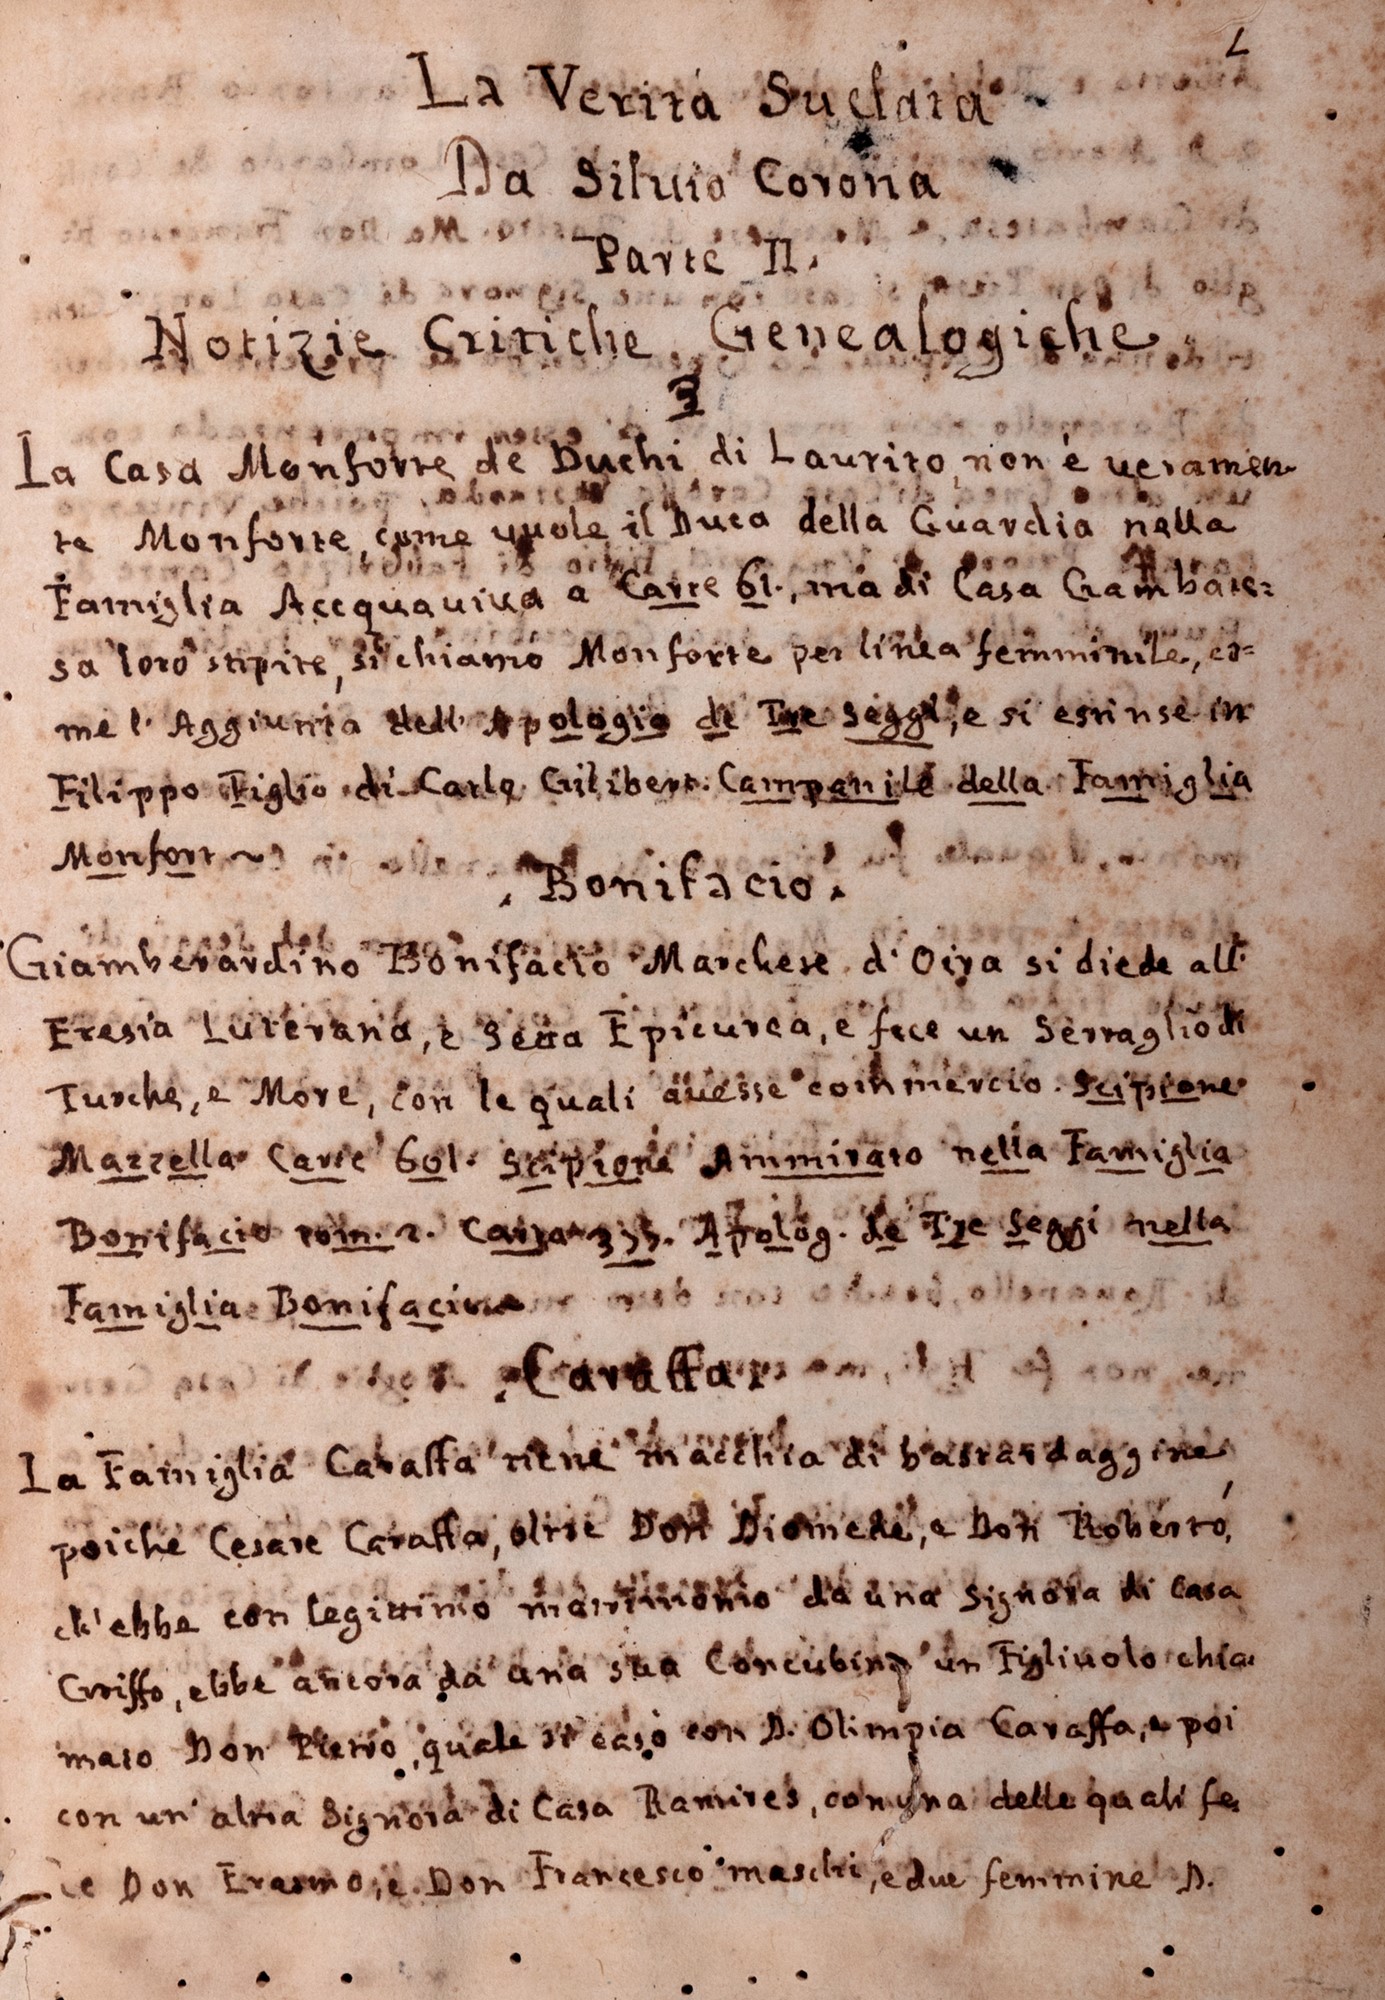 La Verità Suelata
Da Siluio Corona
Parte II.
Notizie Critiche, Genealogiche
La Casa Monforte de Duchi di Laurito, non è veramen-
te Monforte, come vuole il Duca della Guardia nella
Famiglia Accquauiua a Carte 61., ma di Casa Gambate=
sa loro stipite, si chiamò Monforte per linea femminile, co=
me l'Aggiunta dell'Apologio de Tre Seggi, e si estinse in
Filippo Figlio di Carlo Gilibert. Campanile della Famiglia
Monfort
Bonifacio
Giamberardino Bonifacio Marchese d'Oira si diede all'
Eresia Luterana, e Setta Epicurea, e fece un Serraglio di
Turche, e More, con le quali auesse commercio. Scipione
Mazzella Carte 601. Scipione Ammirato nella Famiglia
Bonifacio tom. 2. Carta 355. Apolog. de Tre Seggi nella
Famiglia Bonifacio
Caraffa
La Famiglia Caraffa tiene macchia di bastardaggine
poiche Cesare Caraffa, oltre Don Diomede, e Don Roberto,
ch'ebbe con legittimo matrimonio da una Signora di Casa
Griffo, ebbe ancora da una sua Concubina un Figliuolo chia-
mato Don Pietro, quale si casò con D. Olimpia Caraffa, e poi
con un'altra Signora di Casa Ramires, con una delle quali fe-
ce Don Erasmo, e Don Francesco maschi, e due femmine D.